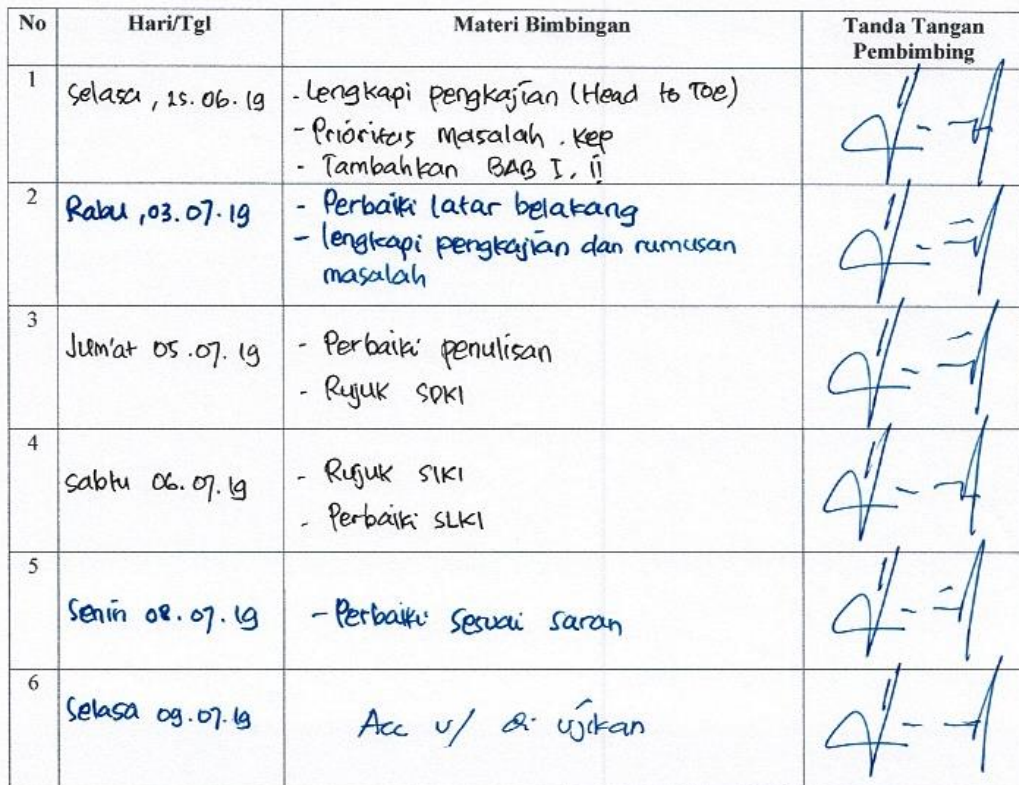 No Hari/Tgl Materi Bimbingan Tanda Tangan
Pembimbing
1 Selasa, 25.06.19 - Lengkapi pengkajian (Head to Toe)
- Prioritas masalah . Kep
- Tambahkan BAB I, II
2 Rabu, 03.07.19 - Perbaiki latar belakang
- lengkapi pengkajian dan rumusan
masalah
3 Jum'at 05.07.19 - Perbaiki penulisan
- Rujuk SDKI
4 Sabtu 06.07.19 - Rujuk SIKI
- Perbaiki SLKI
5 Senin 08.07.19 - Perbaiki sesuai saran
6 Selasa 09.07.19 Acc u/ di ujikan